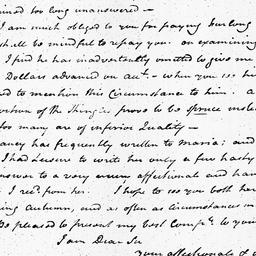 ined too long unanswered —
I am much obliged to you for paying our long
shall be mindful to repay you. on examining
I find he has inadvertently omitted to give me
Dollars advanced on acct. — when you see hi
ed to mention this Circumstance to him. a
ortion of the shingles prove to be spruce inste
too many are of inferior Quality —
ancy has frequently written to Maria; and
I had Leisure to write her only a few hasty
answer to a very affectionate and han
I recd. from her. I hope to see you both her
ing autumn, and as often as Circumstances m
Be pleased to present my best Compts. to you
I am Dear Sir
your affectionate f